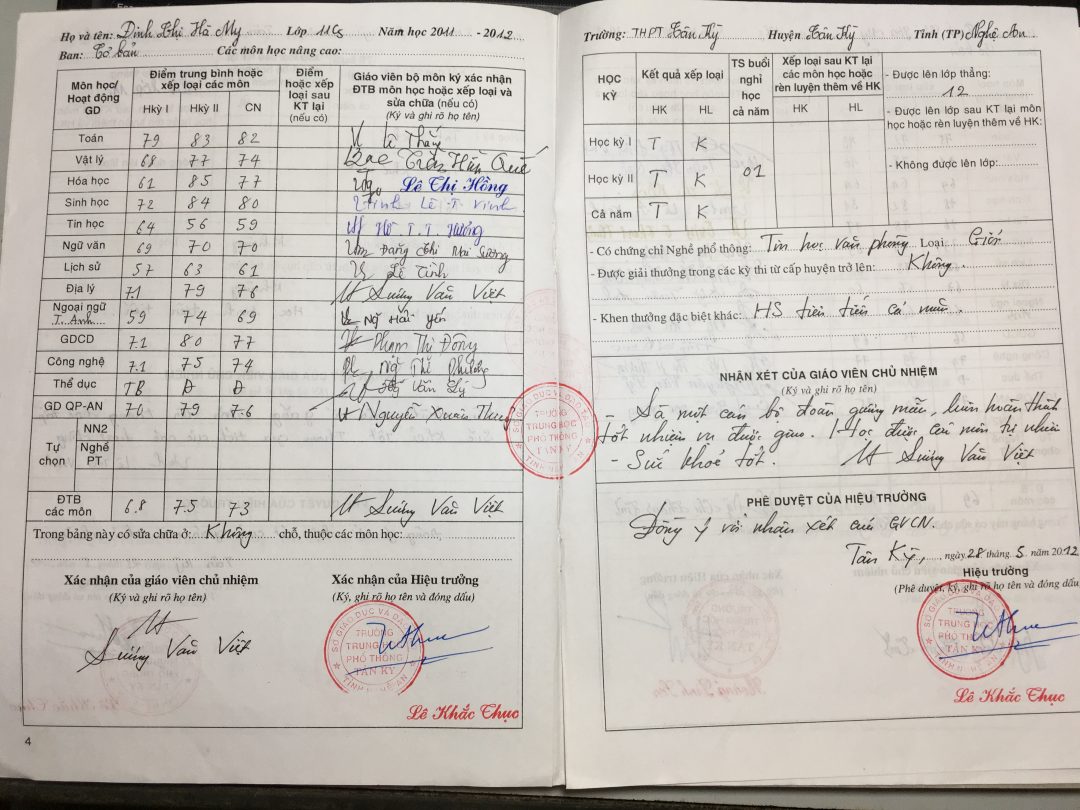 Họ và tên: Đinh Thị Hà My Lớp 11C5 Năm học 2011 - 2012
Ban: Cơ bản Các môn học nâng cao:
Môn học/ Hoạt động GD
Điểm trung bình hoặc xếp loại các môn
Hkỳ I Hkỳ II CN
Điểm hoặc xếp loại sau KT lại (nếu có)
Giáo viên bộ môn ký xác nhận ĐTB môn học hoặc xếp loại và sửa chữa (nếu có)
(Ký và ghi rõ họ tên)
Toán 7,9 8,3 8,2 Lê Thấy
Vật lý 6,8 7,7 7,4 Trần Hữu Quế
Hóa học 6,1 8,5 7,7 Lê Thị Hồng
Sinh học 7,2 8,4 8,0 Lê T. Vinh
Tin học 6,4 5,6 5,9 Hồ T.T. Hưởng
Ngữ văn 6,9 7,0 7,0 Đặng Thị Mai Sương
Lịch sử 5,7 6,3 6,1 Lê Tình
Địa lý 7.1 7,9 7,6 Văn Việt
Ngoại ngữ T. Anh 5,9 7,4 6,9 Ng Hải Yến
GDCD 7.1 8,0 7,7 Phạm Thị Đông
Công nghệ 7.1 7,5 7,4 Ng Thị Phương
Thể dục TB Đ Đ Văn
GD QP-AN 7,0 7,9 7.6 Nguyễn Xuân Thung
Tự chọn
NN2
Nghề PT
ĐTB các môn 6.8 7.5 7.3 Văn Việt
Trong bảng này có sửa chữa ở: Không chỗ, thuộc các môn học:
Xác nhận của giáo viên chủ nhiệm
(Ký và ghi rõ họ tên)
Văn Việt
Xác nhận của Hiệu trưởng
(Ký, ghi rõ họ tên và đóng dấu)
SỞ GIÁO DỤC VÀ ĐÀO TẠO
TRƯỜNG
TRUNG HỌC
PHỔ THÔNG
TÂN KỲ
TỈNH NGHỆ AN
Lê Khắc Thục
4
Trường: THPT Tân Kỳ Huyện Tân Kỳ Tỉnh (TP) Nghệ An
HỌC KỲ
Kết quả xếp loại
HK HL
TS buổi nghỉ học cả năm
Xếp loại sau KT lại các môn học hoặc rèn luyện thêm về HK
HK HL
Học kỳ I T K
Học kỳ II T K
01
Cả năm T K
- Được lên lớp thẳng:
12
- Được lên lớp sau KT lại môn học hoặc rèn luyện thêm về HK:
- Không được lên lớp:
- Có chứng chỉ Nghề phổ thông: Tin học văn phòng Loại Giỏi
- Được giải thưởng trong các kỳ thi từ cấp huyện trở lên: Không.
- Khen thưởng đặc biệt khác: HS tiên tiến cả năm.
NHẬN XÉT CỦA GIÁO VIÊN CHỦ NHIỆM
(Ký và ghi rõ họ tên)
- Là một cán bộ đoàn gương mẫu, luôn hoàn thành
tốt nhiệm vụ được giao. Học được các môn tự nhiên
- Sức khoẻ tốt. Văn Việt
SỞ GIÁO DỤC VÀ ĐÀO TẠO
TRƯỜNG
TRUNG HỌC
PHỔ THÔNG
TÂN KỲ
TỈNH NGHỆ AN
PHÊ DUYỆT CỦA HIỆU TRƯỞNG
Đồng ý với nhận xét của GVCN.
Tân Kỳ, ngày 28 tháng 5 năm 2012
Hiệu trưởng
(Phê duyệt, ký, ghi rõ họ tên và đóng dấu)
SỞ GIÁO DỤC VÀ ĐÀO TẠO
TRƯỜNG
TRUNG HỌC
PHỔ THÔNG
TÂN KỲ
TỈNH NGHỆ AN
Lê Khắc Thục